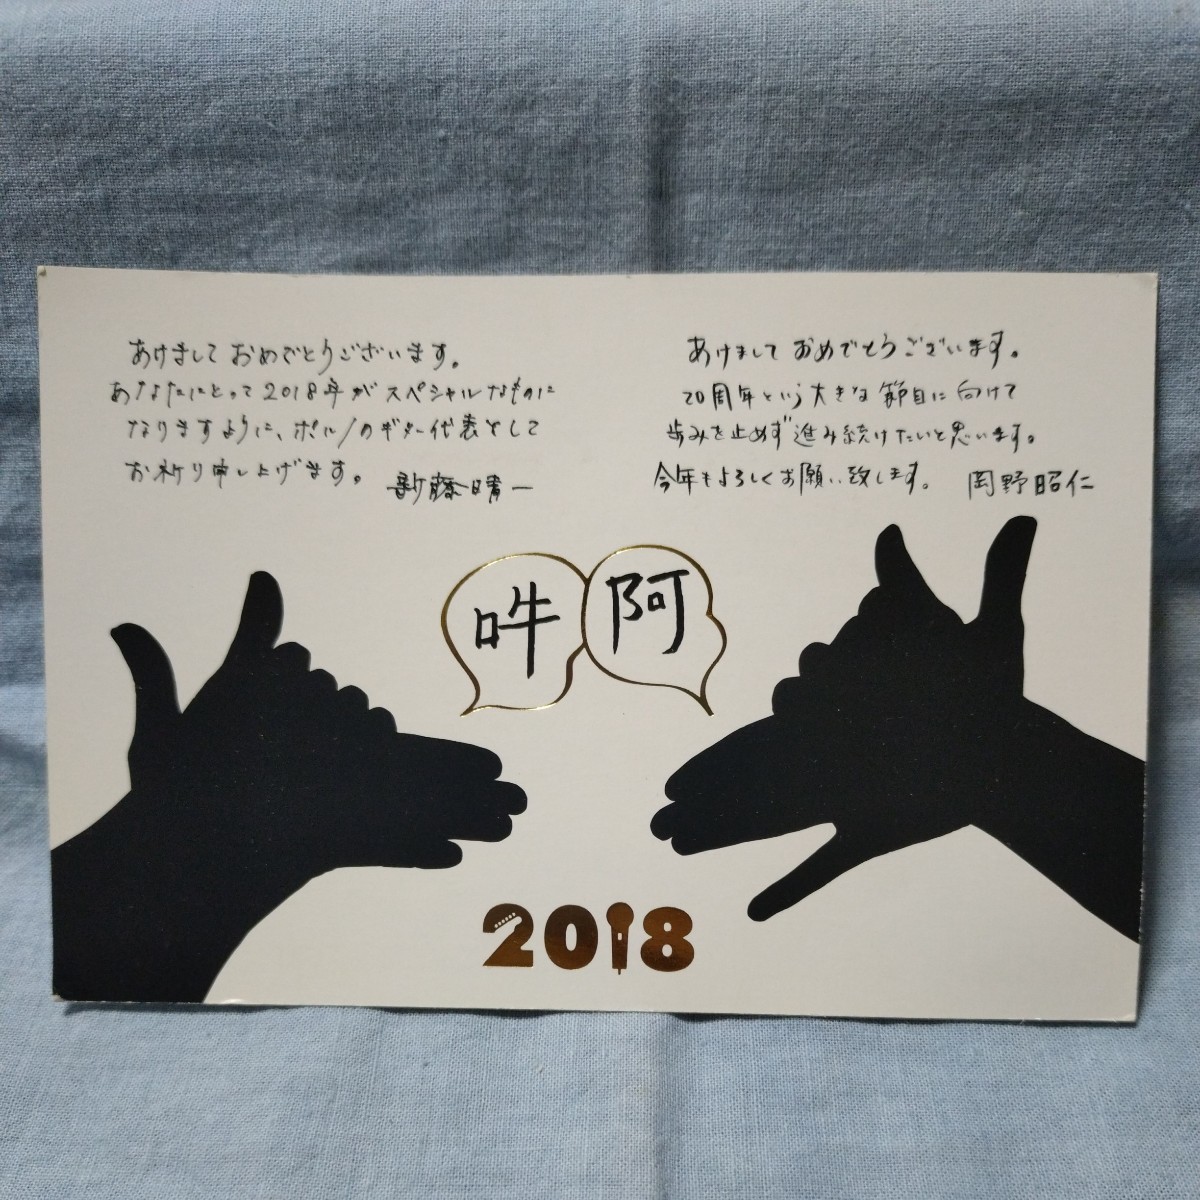 あけまして おめでとうございます。
あなたにとって2018年がスペシャルなものに
なりますように、ポルノのギター代表として
お祈り申し上げます。 新藤晴一
あけまして おめでとうございます。
20周年という大きな節目に向けて
歩みを止めず進み続けたいと思います。
今年もよろしくお願い致します。 岡野昭仁
吽
阿
2018